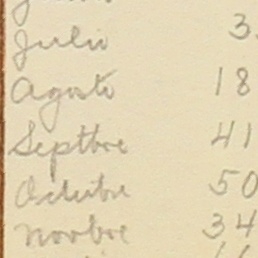 Julio 3
Agosto 18
Septbre 41
Octubre 50
Novbre 34